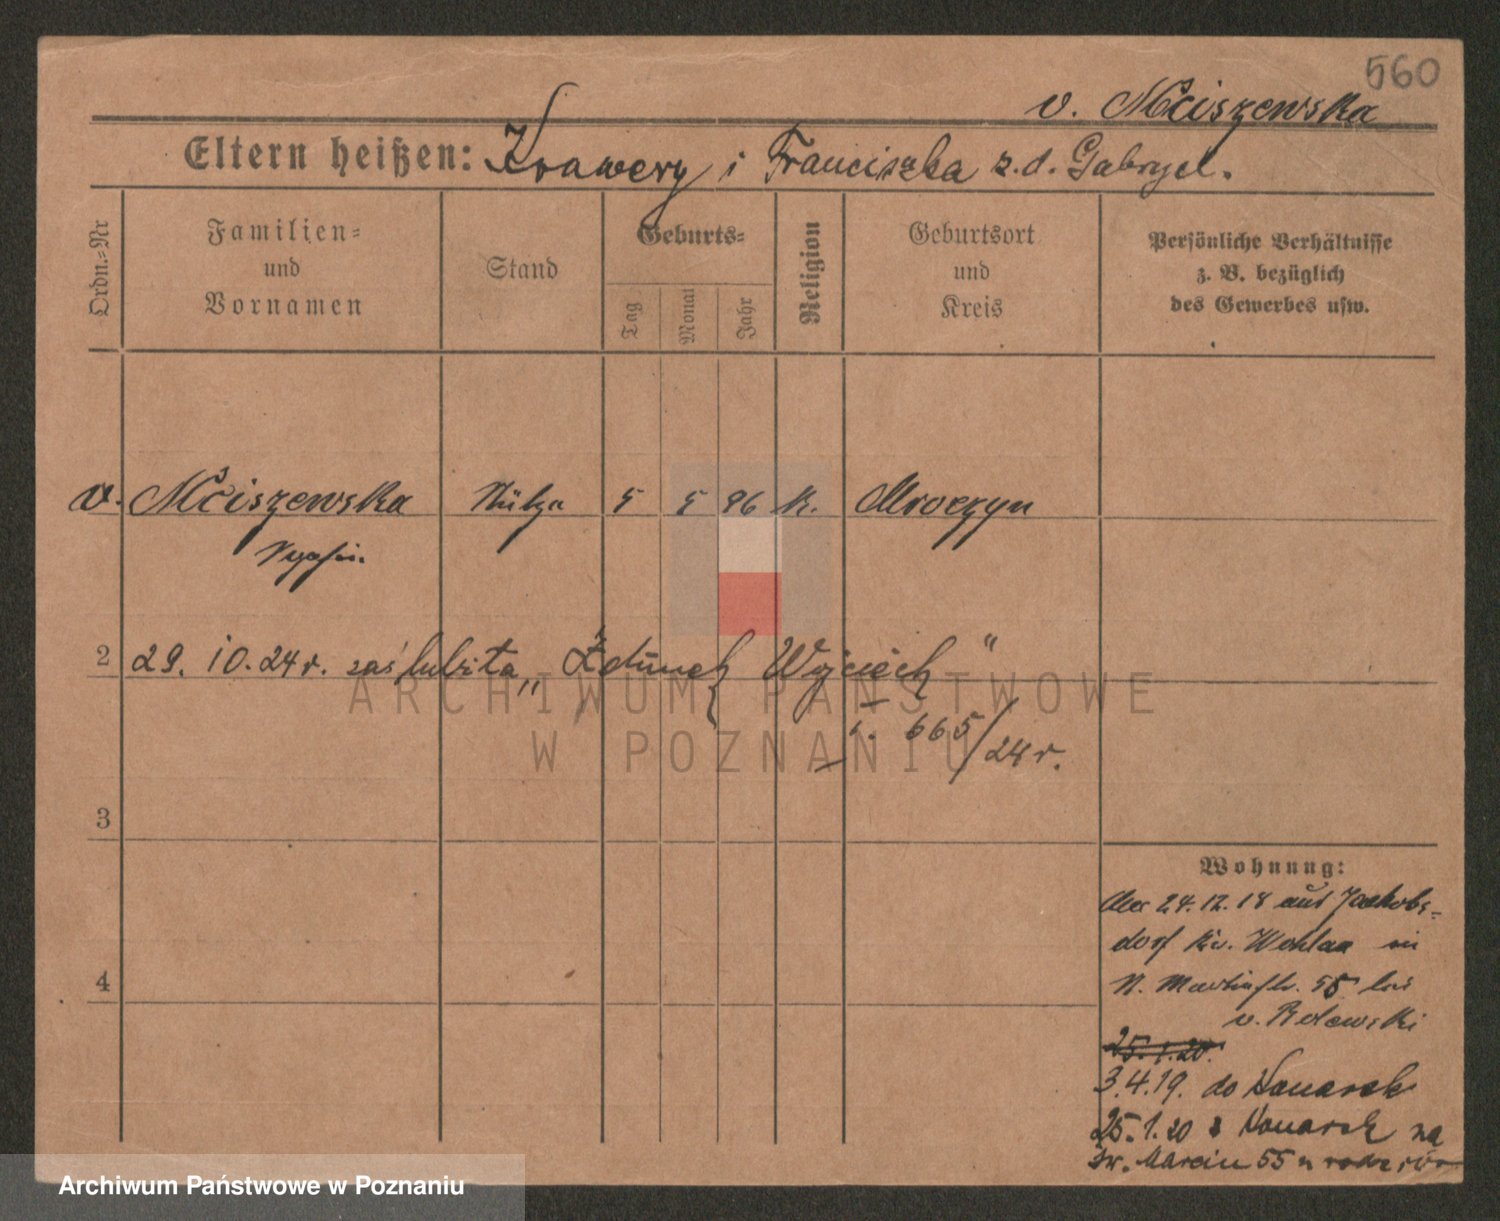 560
v. Mciszewska
Eltern heißen: Xrawery i Franciszka z.d. Gabryel.
Ordn.-Nr
Familien-
und
Vornamen
Stand
Geburts-
Tag
Monat
Jahr
Religion
Geburtsort
und
Kreis
Persönliche Verhältnisse
z. B. bezüglich
des Gewerbes usw.
v. Mciszewska Stütze 5 5 96 k. Mroczyn
2 29. 10. 24 r. zaślubiła „Żdunek Wojciech"
665/24 r.
3
4
Wohnung:
24.12.18 aus Jackobs-
dorf Kr. Wohlau in
St. Martinstr. 55 bei
v.
25.1.20.
3.4.19. do Konarsk
25.1.20 z Konarsk na
św. Marcin 55
ARCHIWUM PAŃSTWOWE
W POZNANIU
Archiwum Państwowe w Poznaniu